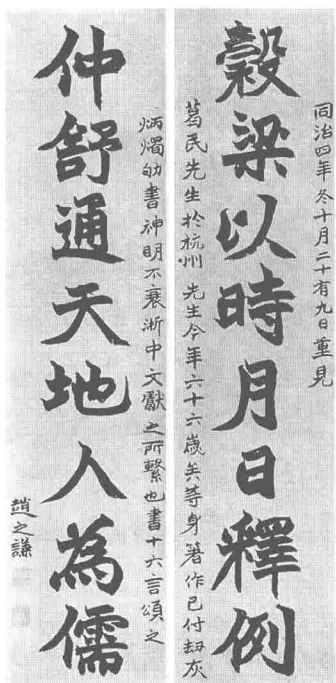 同治四年冬十月二十有九日重見
穀梁以時月日釋例
葛民先生於杭州 先生今年六十六歲矣等身箸作已付劫灰
炳燭劬書神明不衰浙中文獻之所繫也書十六言頌之
仲舒通天地人為儒
趙之謙